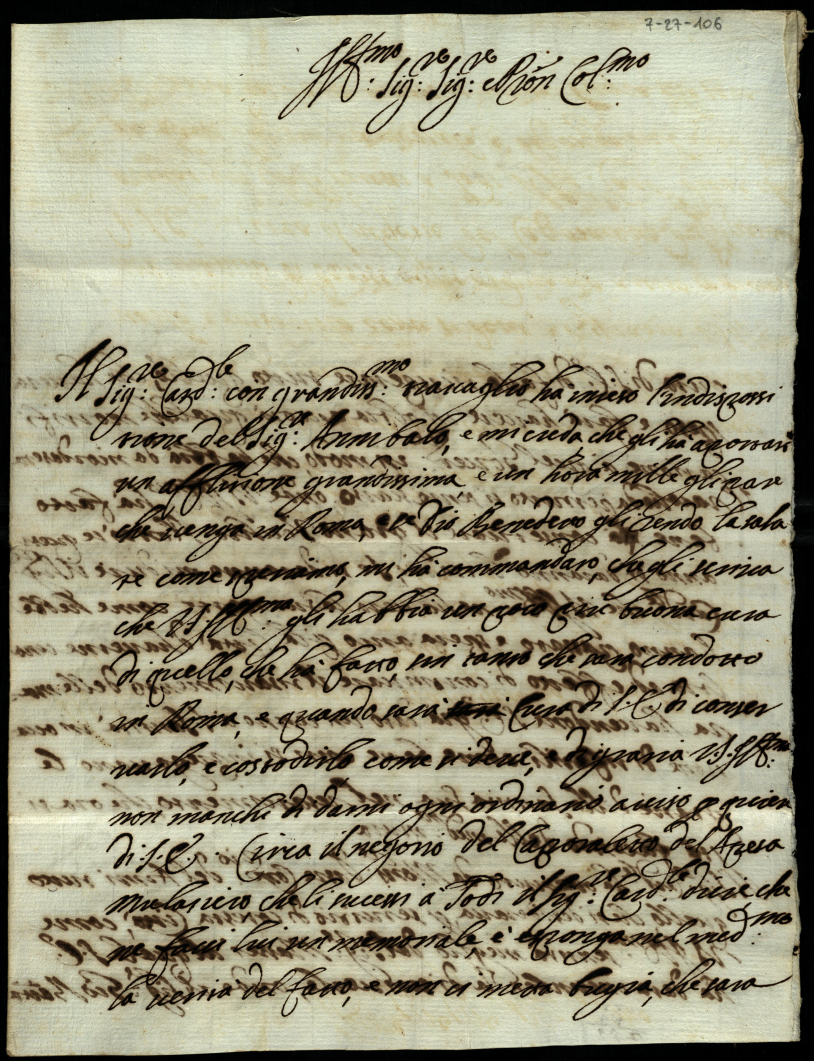 7-27-106
Ill:mo Sig:re Sig:re e Pron Col:mo
Il Sig:re Card:le con grandiss:mo travaglio ha inteso l'indisposi
tione del Sig:re Annibale, e mi creda che gli ha apportato
un afflitione grandissima e un hora mille gli pare
che venga in Roma, e se Dio Benedetto gli rende la salu
te come speriamo, mi ha commandato, che gli scriva
che V.S. Ill:ma gli habbia un poco più buona cura
di quello, che ha fatto, sin tanto che sara condotto
in Roma, e quando sarà Cura di S. E. di conser
varlo, e costodirlo come si deve, e di gratia V.S. Ill:ma
non manchi di darmi ogni ordinario aviso p quiete
di S. E. Circa il negotio del Caporaletto del
che li successe à Todi il Sig:re Card:le dice, che
ne facci lui un memoriale e esponga nel med:mo
la verita del fatto, e non ci metta bugia, che sara